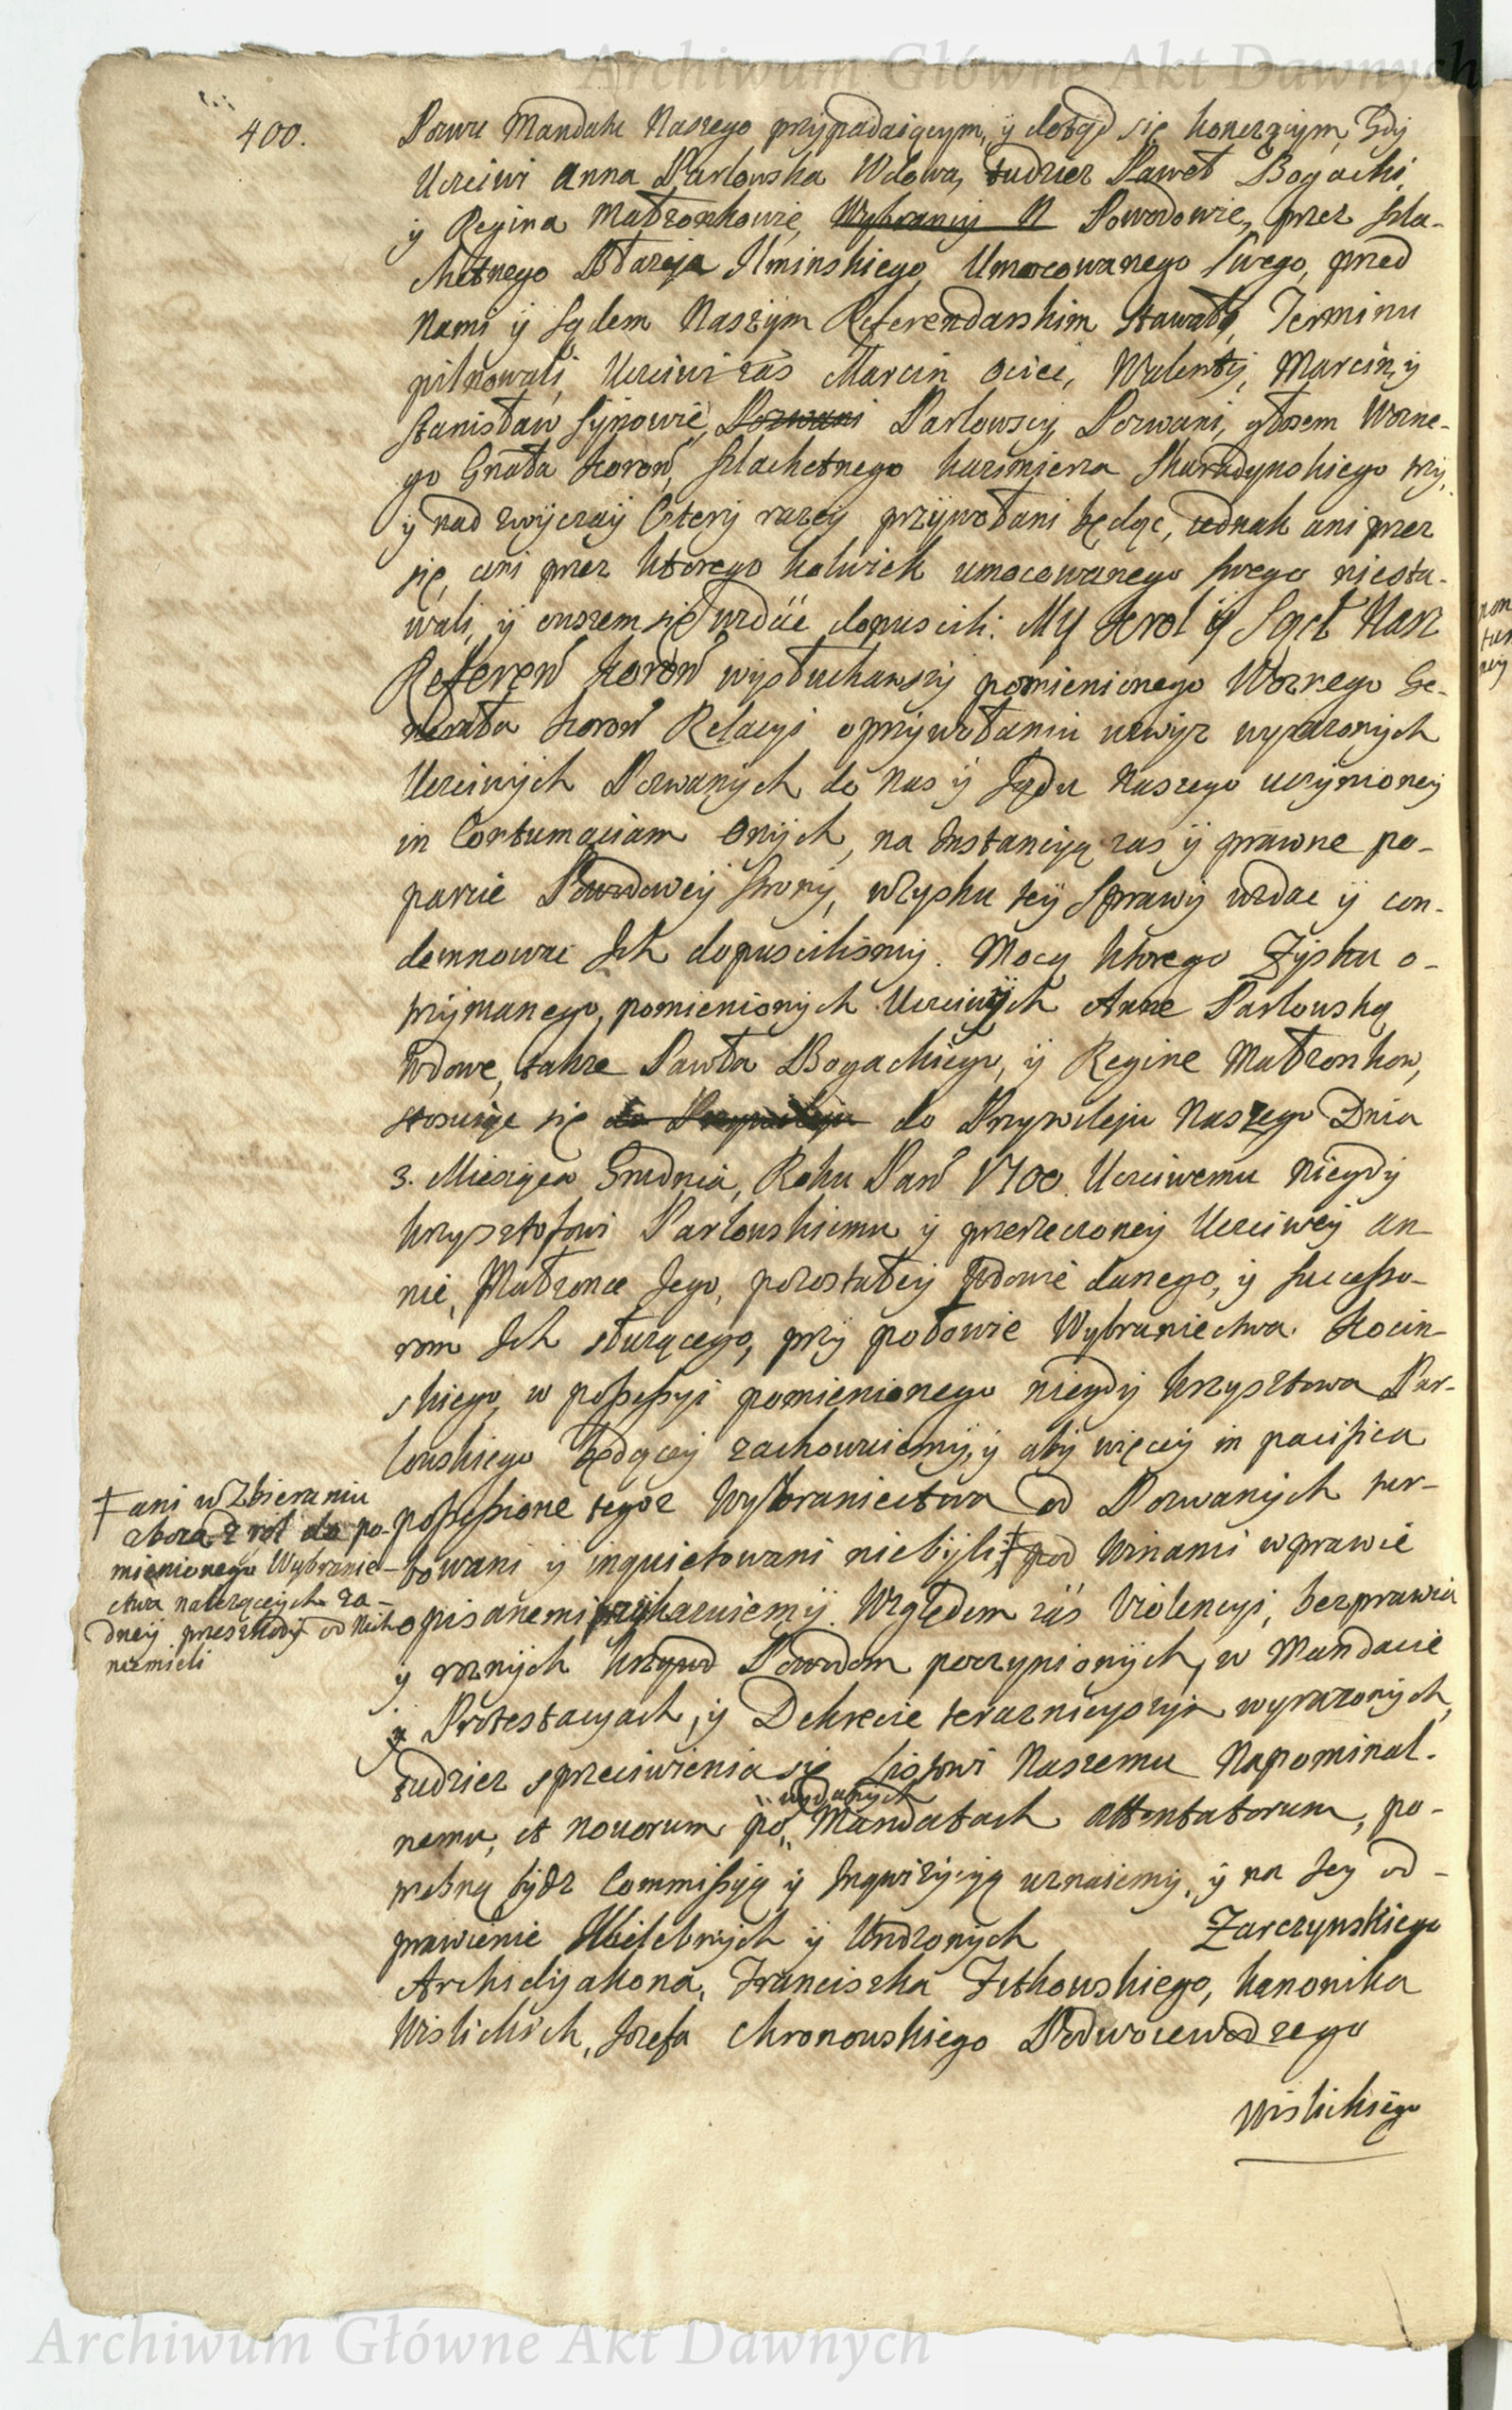 Archiwum Główne Akt Dawnych
400.
Pozwu Mandatu Naszego przypadaiącym, ÿ dotąd się kończącym, Gdÿ
Uczciwi Anna Parlowska Wdowa, tudzież Paweł Bogacki,
ÿ Regina Małżonkowie, Wybrancÿ N Powodowie, przez Szla-
chetnego Ilminskiego Umocowanego swego, przed
Nami ÿ Sądem Naszÿm Referendarskim stawały, Terminu
pilnowali, Uczciwi zaś Marcin Ociec, Walentÿ, Marcin, ÿ
Stanisław Sÿnowie, Pozwani Parlowscÿ Pozwani, głosem Wozne-
go Gnała Koroñ, Szlachetnego Kazimierza Skaradynskiego trzÿ,
ÿ nad zwÿczaÿ Czterÿ razÿ przÿwołani będąc, iednak ani przez
się, ani przez ktorego kolwiek umocowanego swego niesta-
wali, ÿ owszem się wzdać dopuscili: MY Krol ÿ Sąd Nasz
Referen Koroñ wysłuchawszÿ pomienionego Woznego Ge-
nerała Koroñ Relacyi o przÿwołaniu wzwÿż wyrażonÿch
Uczciwÿch Pozwanÿch do Nas ÿ Sądu Naszego uczÿnioneÿ
in Contumaciam Onÿch, na Instancÿą zas ÿ prawne po-
parcie Powodoweÿ stronÿ, w zysku teÿ Sprawÿ wzdac ÿ con-
demnowac Ich dopuscilismÿ. Mocą ktorego Zÿsku o-
trzÿmanego, pomienionÿch Uczciwÿch Anne Parlowską
Wdowe, także Pawła Bogackiego, ÿ Regine Małżonkow,
stosuiąc się do Przywileju do Przywileju Naszego Dnia
3. Miesiąca Grudnia, Roku Pañ 1700. Uczciwemu niegdÿ
Krzysztofowi Parlowskiemu ÿ przerzeczoneÿ Uczciweÿ An-
nie, Małżonce Jego, pozostałeÿ Wdowie danego, ÿ Successo-
rom Ich służącego, przÿ połowie Wybraniectwa Kocin-
skiego, w possessÿi pomienionego niegdÿ Krzysztowa Par-
lowskiego będąceÿ zachowuiemÿ, ÿ abÿ więceÿ in pacifica
possessione tegoż Wybraniectwa od Pozwanÿch tur-
bowani ÿ inquietowani niebÿli ‡ pod Winami w prawie
opisanemi przÿkazuiemÿ. Względem zaś Violencÿi, bezprawia
ÿ roznÿch krzywd Powodom poczynionÿch, w Mandacie
ÿ Protestacÿach, ÿ Dekrecie teraznieyszÿm wyrażonÿch,
tudzież sprzeciwienia się Listowi Naszemu Napominal-
nemu, et novorum po wydanÿch Mandatach attentatorum, po-
trzebną bÿdz Commissÿą ÿ Inqwizÿcÿą uznaiemÿ, ÿ na Jeÿ od-
prawienie Wielebnÿch ÿ Urodzonÿch Zarczynskiego
Archidÿakona, Franciszka Kanonika
Wislickich, Jozefa Chronowskiego Podwoiewodzego
Wislickiego
‡ ani w Zbieraniu
zboża z rol do po-
mienionego Wybranie-
ctwa należącÿch ża-
dneÿ przeszkodÿ od Nich
niemieli
Archiwum Główne Akt Dawnych